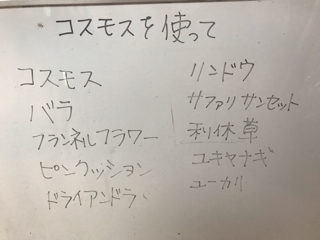 コスモスを使って
コスモス
バラ
フランネルフラワー
ピンクッション
ドライアンドラ
リンドウ
サファリサンセット
利休草
ユキヤナギ
ユーカリ